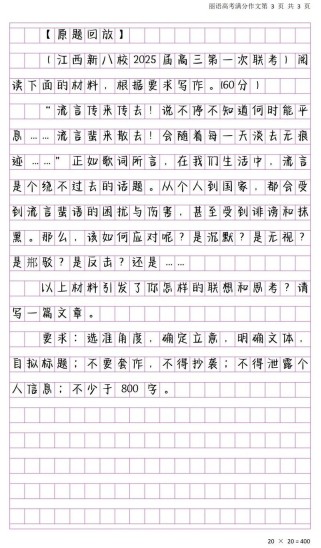 丽语高考满分作文第 3 页 共 3 页
【原题回放】
（江西新八校2025届高三第一次联考）阅
读下面的材料，根据要求写作。(60分)
“流言传来传去！说不停不知道何时能平
息……流言蜚来散去！会随着每一天淡去无痕
迹……”正如歌词所言，在我们生活中，流言
是个绕不过去的话题。从个人到国家，都会受
到流言蜚语的困扰与伤害，甚至受到诽谤和抹
黑。那么，该如何应对呢？是沉默？是无视？
是邢驳？是反击？还是……
以上材料引发了你怎样的联想和思考？请
写一篇文章。
要求：选准角度，确定立意，明确文体，
自拟标题；不要套作，不得抄袭；不得泄露个
人信息；不少于 800 字。
20 × 20 = 400